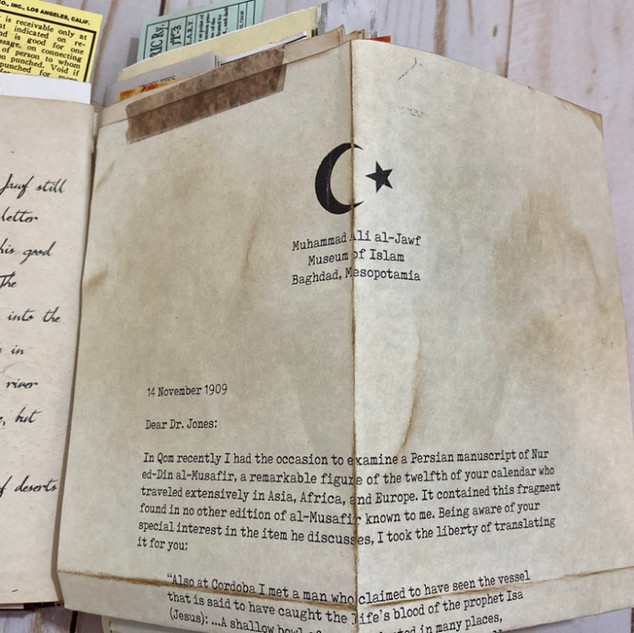 CO., INC., LOS ANGELES, CALIF.
is receivable only at
indicated on re-
is good for one
on connecting
of person to whom
punched. Void if
punched for
Jawf still
letter
his good
The
into the
in
river
but
of deserts
Muhammad Ali al-Jawf
Museum of Islam
Baghdad, Mesopotamia
14 November 1909
Dear Dr. Jones:
In Qom recently I had the occasion to examine a Persian manuscript of Nur
ed-Din al-Musafir, a remarkable figure of the twelfth of your calendar who
traveled extensively in Asia, Africa, and Europe. It contained this fragment
found in no other edition of al-Musafir known to me. Being aware of your
special interest in the item he discusses, I took the liberty of translating
it for you:
"Also at Cordoba I met a man who claimed to have seen the vessel
that is said to have caught the life's blood of the prophet Isa
(Jesus): ...A shallow bowl in many places,